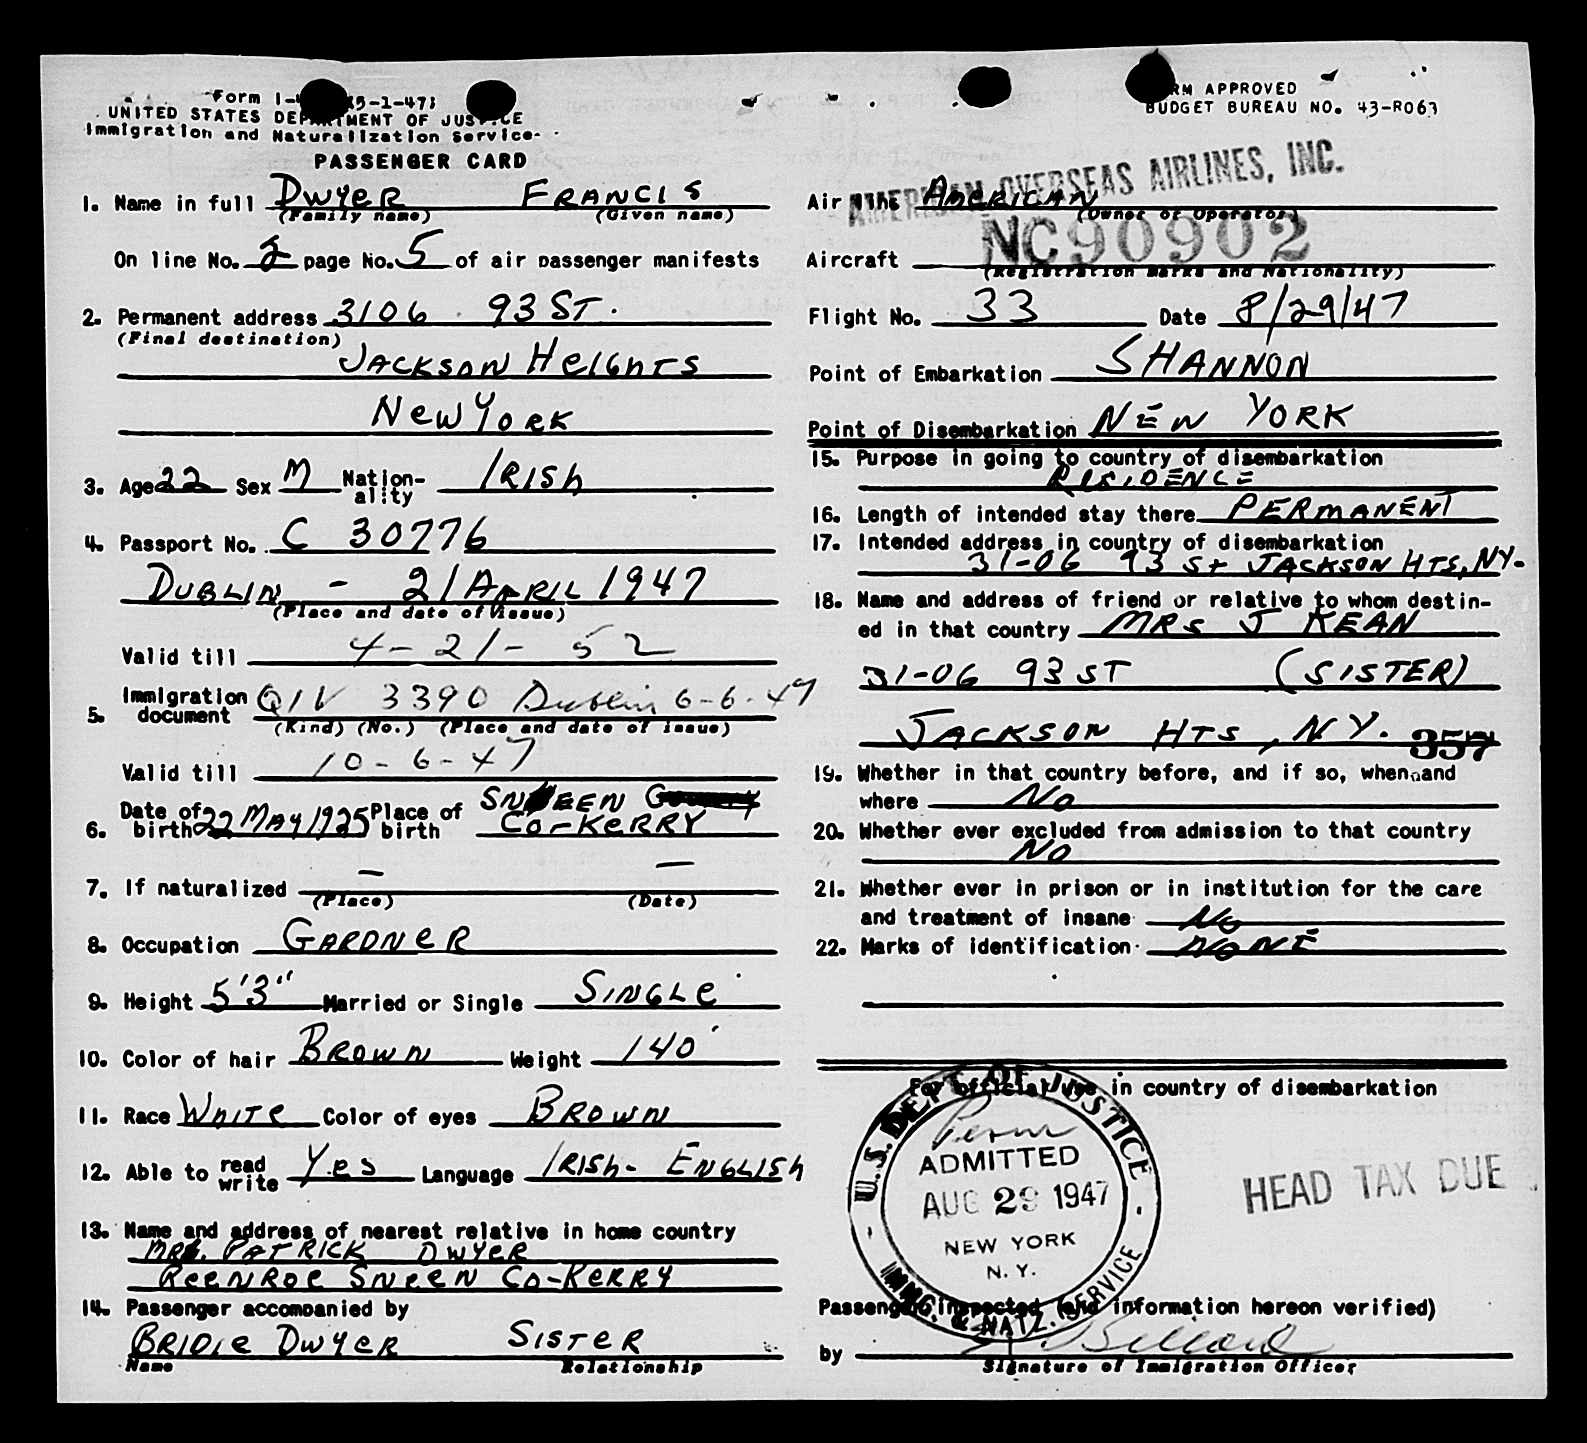 Form I- (5-1-47)
UNITED STATES DEPARTMENT OF JUSTICE
Immigration and Naturalization Service
PASSENGER CARD
1. Name in full DWYER FRANCIS
(Family name) (Given name)
On line No. 2 page No. 5 of air passenger manifests
2. Permanent address 3106 93 ST.
(Final destination)
JACKSON HEIGHTS
NEW YORK
3. Age 22 Sex M Nation-ality IRISH
4. Passport No. C 30776
DUBLIN - 21 APRIL 1947
(Place and date of issue)
Valid till 4-21-52
5. Immigration document QIV 3390 Dublin 6-6-47
(Kind) (No.) (Place and date of issue)
Valid till 10-6-47
6. Date of birth 22 MAY 1925 Place of birth SNEEN
CO-KERRY
7. If naturalized — —
(Place) (Date)
8. Occupation GARDNER
9. Height 5'3" Married or Single SINGLE
10. Color of hair BROWN Weight 140
11. Race WHITE Color of eyes BROWN
12. Able to read write YES Language IRISH - ENGLISH
13. Name and address of nearest relative in home country
MRS. PATRICK DWYER
REENROE SNEEN CO-KERRY
14. Passenger accompanied by
BRIDIE DWYER SISTER
Name Relationship
FORM APPROVED
BUDGET BUREAU NO. 43-R063
AMERICAN OVERSEAS AIRLINES, INC.
Air line AMERICAN
(Owner or Operator)
Aircraft NC90902
(Registration marks and Nationality)
Flight No. 33 Date 8/29/47
Point of Embarkation SHANNON
Point of Disembarkation NEW YORK
15. Purpose in going to country of disembarkation
RESIDENCE
16. Length of intended stay there PERMANENT
17. Intended address in country of disembarkation
31-06 93 St JACKSON HTS, NY.
18. Name and address of friend or relative to whom destin-
ed in that country MRS J KEAN
31-06 93 ST (SISTER)
JACKSON HTS, NY. 357
19. Whether in that country before, and if so, when and
where NO
20. Whether ever excluded from admission to that country
NO
21. Whether ever in prison or in institution for the care
and treatment of insane NO
22. Marks of identification NONE
For official use in country of disembarkation
U.S. DEPT. OF JUSTICE
Perm
ADMITTED
AUG 29 1947
NEW YORK
N.Y.
IMMG. & NATZ. SERVICE
HEAD TAX DUE
Passenger inspected (and information hereon verified)
by
Signature of Immigration Officer